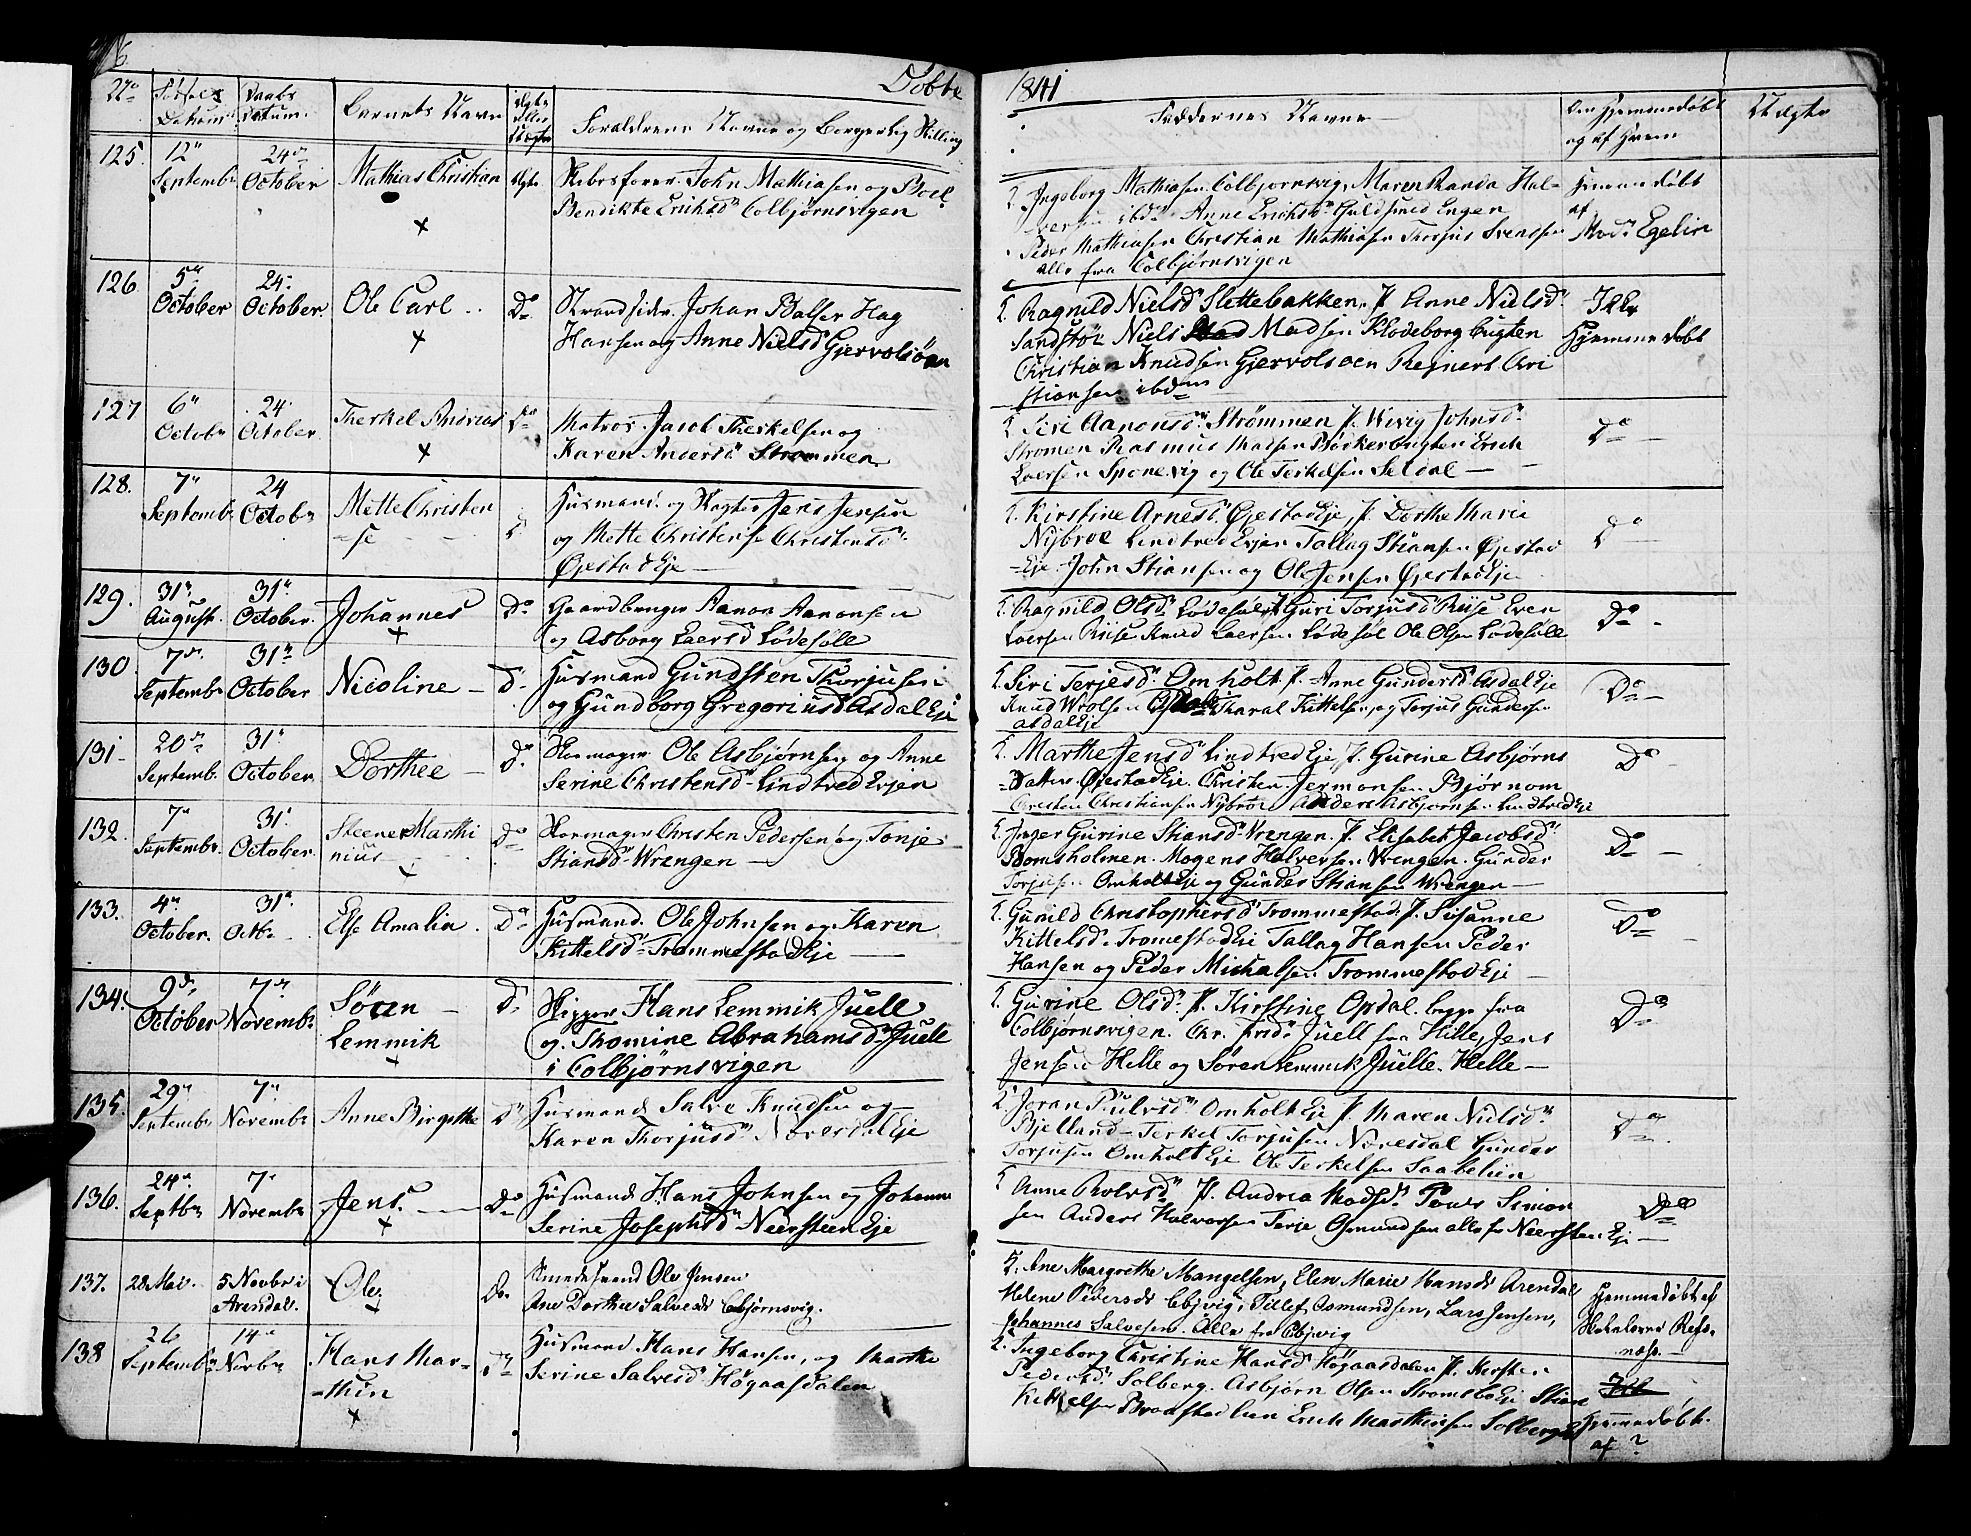 Døbte 1841
No Fødsels Datum Daabs Datum. Barnets Navn Ægte eller Uægte Foraldrenes Navne og Borgerlig Stilling
Faddernes Navne Om Hjemmedøbt og af Hvem Uægte
125. 12te September 24de October Mathias Christian Ægte
Skibsfører John Mathiasen og Boel
Bendikte Eriksdr Colbjørnsvigen
Ingeborg Mathiasen Colbjørnsvig, Maren Randa Hal-
versen ibdm Anne Erichsdr Guldsmed Engen
Peder Mathiasen Christian Mathiasen Thorjus Svensen
alle fra Colbjørnsvigen
Himmedøbt
af
Mad. Egelin
126. 5te October 24. October Ole Carl Do
Strandsidr. Johan Balser Hag
Hansen og Anne Nielsd Gjervolsöen
Ragnild Nielsd Slettebakken, J. Anne Nielsd.
Sandstöe Niels Madsen Klodeborg bugten
Christian Knudsen Gjervolsoen Regnert Cri
stiansen ibdm
Ikke
Hjemmedøbt
127 6te October 24. October Therkel Andreas Do
Matros Jacob Therkelsen og
Karen Andersd Strømmen
Siri Aanonsd. Strømmen J. Wivig Johnsd.
Strømen Rasmus Madsen Bøckerbugten Erich
Laersen Sponevig og Ole Terkelsen Seldal
Do
128. 7de September 24 October Mette Christen
=se
Husmand og Jens Jensen
og Mette Christense Christensd.
Øjestad Eje
Kirstine Arnesd. Øjestad Eje, J. Dorthe Marie
Nÿbroe Lindtved Ejen Tallag Stiansen Øjestad
=Eje John Stiansen og Ole Jensen Øjestad Eje
Do
129. 31te August. 31te October. Johannes Do
Gaardbruger Aanon Aanonsen
og Asborg Laersd Lødesölle
Ragnild Olsd. Lødesöle J Guri Torjusd Riise Even
Laersen Riise Knud Laersen Lødesöl Ole Olsen Lødesölle
Do
130. 7de September 31te October Nicoline D.
Husmand Gundsten Thorjusen
og Gundborg Gregoriusd Asdal Eje
Siri Terjesd. Omholt J. Anne Gundersd Asdal Eje
Knud Wrolsen Tharal Kittelsen, og Torjus Gundersen
Asdal Eje
Do
131. 20de Septemb. 31te October. Dorthee Do
Skomager Ole Asbjørnsen og Anne
Serine Christensd. Lindtved Ejen
Marthe Jensd Lindtved Eje, J. Gurine Asbjørns
=Datter Øjestad Eje. Christen Jermonsen Bjørnom
Cresten Christiansen Nybroe Anders Asbjørnsen Lindtved Eje
Do
132. 7de Septembr. 31te October. Steener Marthi
nius Do
Skomager Christen Pedersen og Tonje
Stiansd Wrengen
Inger Gurine Stiansd Wrengen. J. Elisabet Jacobsd.
Romsholmen. Mogens Halversen Wrengen. Gunder
Torjusen Omholt Eje og Gunder Stiansen Wrengen
Do
133. 4de October. 31te Octbr. Else Amalia. Do
Husmand. Ole Johnsen og Karen
Kittelsd Trommestad Eje
Gunild Christophersd Trommestad. J. Susanne
Kittelsd. Tromestad Eje Tallag Hansen Peder
Hansen og Peder Michalsen Trommestad Eje
Do
134. 9de October 7de Novembr Søren
Lemmik D.
Skipper Hans Lemmik Juell
og. Thomine Abrahamsd. Juell
i Colbjørnsvigen
Gurine Olsd. J. Kirstine Opdal. begge fra
Colbjørnsvigen. Chr. Frid. Juell fra Hille, Jens
Jensen Helle og Søren Lemmik Juelle. Helle
Do
135. 29de Septembr 7de Novembr Anne Birgithe Do
Husmand Salve Knudsen og
Karen Thorjusd. Navesdal Eje
Joran Omholt Eje J. Maren Nielsd.
Bjelland Terkel Torjusen Navesdal Gunder
Torjusen Omholt Eje Ole Terkelsen Saabeliin
Do
136. 24de Septbr 7de Novembr Jens. Do
Husmand Hans Johnsen og Johanne
Serine Josephsd. Neersteen Eje
Anne Rolvsd J. Andrea Madsd. Simon
sen Anders Halvorsen Terje Osmundsen alle fr Neersten Eje
Do
137. 28 Mai. 5 Novbr i
Arendal. Ole. Do.
Ole Jensen
Ane Dorthee Salvesdr Cbjørnsvig.
Ane Margrethe Mangelsen, Elen Marie Hansdr Arendal
Helene Pedersdr Cbjvig, Tellef Osmundsen, Lars Jensen,
Johannes Salvesen. Alle fra Cbjvig
Hjemmedøbt af
138 26 September 14de Novbr Hans Mar=
=thin Do
Husmand Hans Hansen, og Marthe
Serine Salvesd Høgaasdalen
Ingeborg Christine Hansd Høgaasdalen J. Kirsten
Pedersd. Solberg. Asbjørn Olsen Strømsbo Eje Stian
Kittelsen Braastad Lien Erich Mathisen Solberg
Hjemmedøbt.
af ?